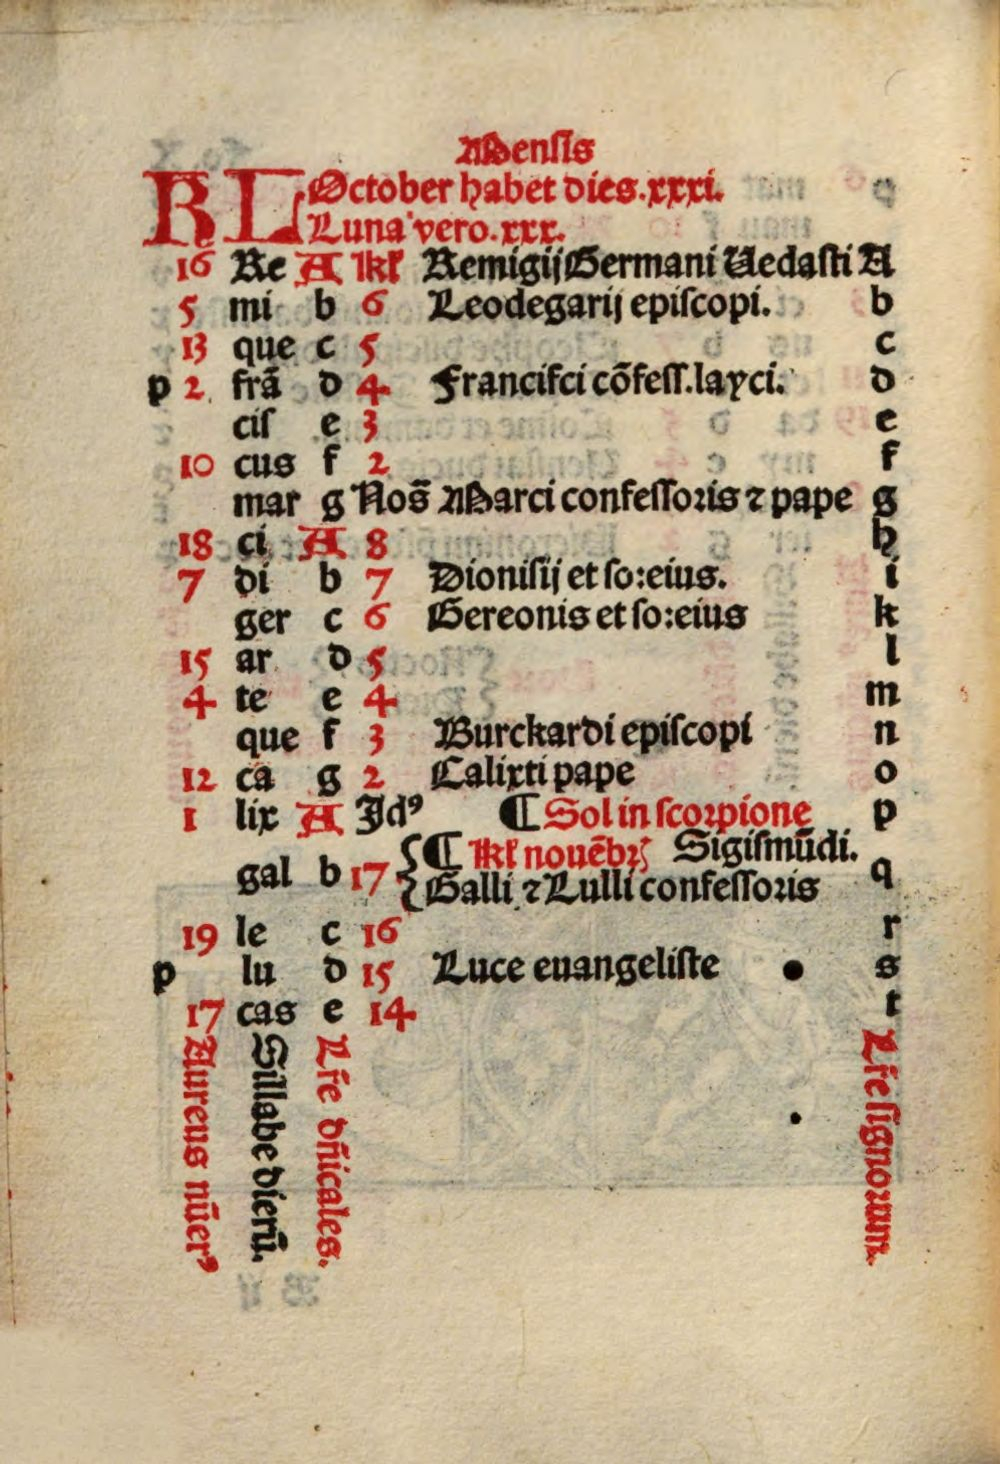 Mensis
KL October habet dies.xxxi.
Luna vero.xxx.
16 Re A kł Remigij Germani Uedasti A
5 mi b 6 Leodegarij episcopi. b
13 que c 5 c
p 2 frā d 4 Francisci cōfess.layci. d
cis e 3 e
10 cus f 2 f
mar g Nos̄ Marci confessoris ⁊ pape g
18 ci A 8 h
7 di b 7 Dionisij et so:eius. i
ger c 6 Gereonis et so:eius k
15 ar d 5 l
4 te e 4 m
que f 3 Burckardi episcopi n
12 ca g 2 Calixti pape o
1 lix A Idꝰ ¶ Sol in scorpione p
gal b 17 { ¶ kł nouēbꝝ Sigismūdi. q
Galli ⁊ Lulli confessoris
19 le c 16 r
p lu d 15 Luce euangeliste s
17 cas e 14 t
Aureus nūerꝰ
Sillabe dierū.
Lr̄e dn̄icales.
Lr̄e signorum.